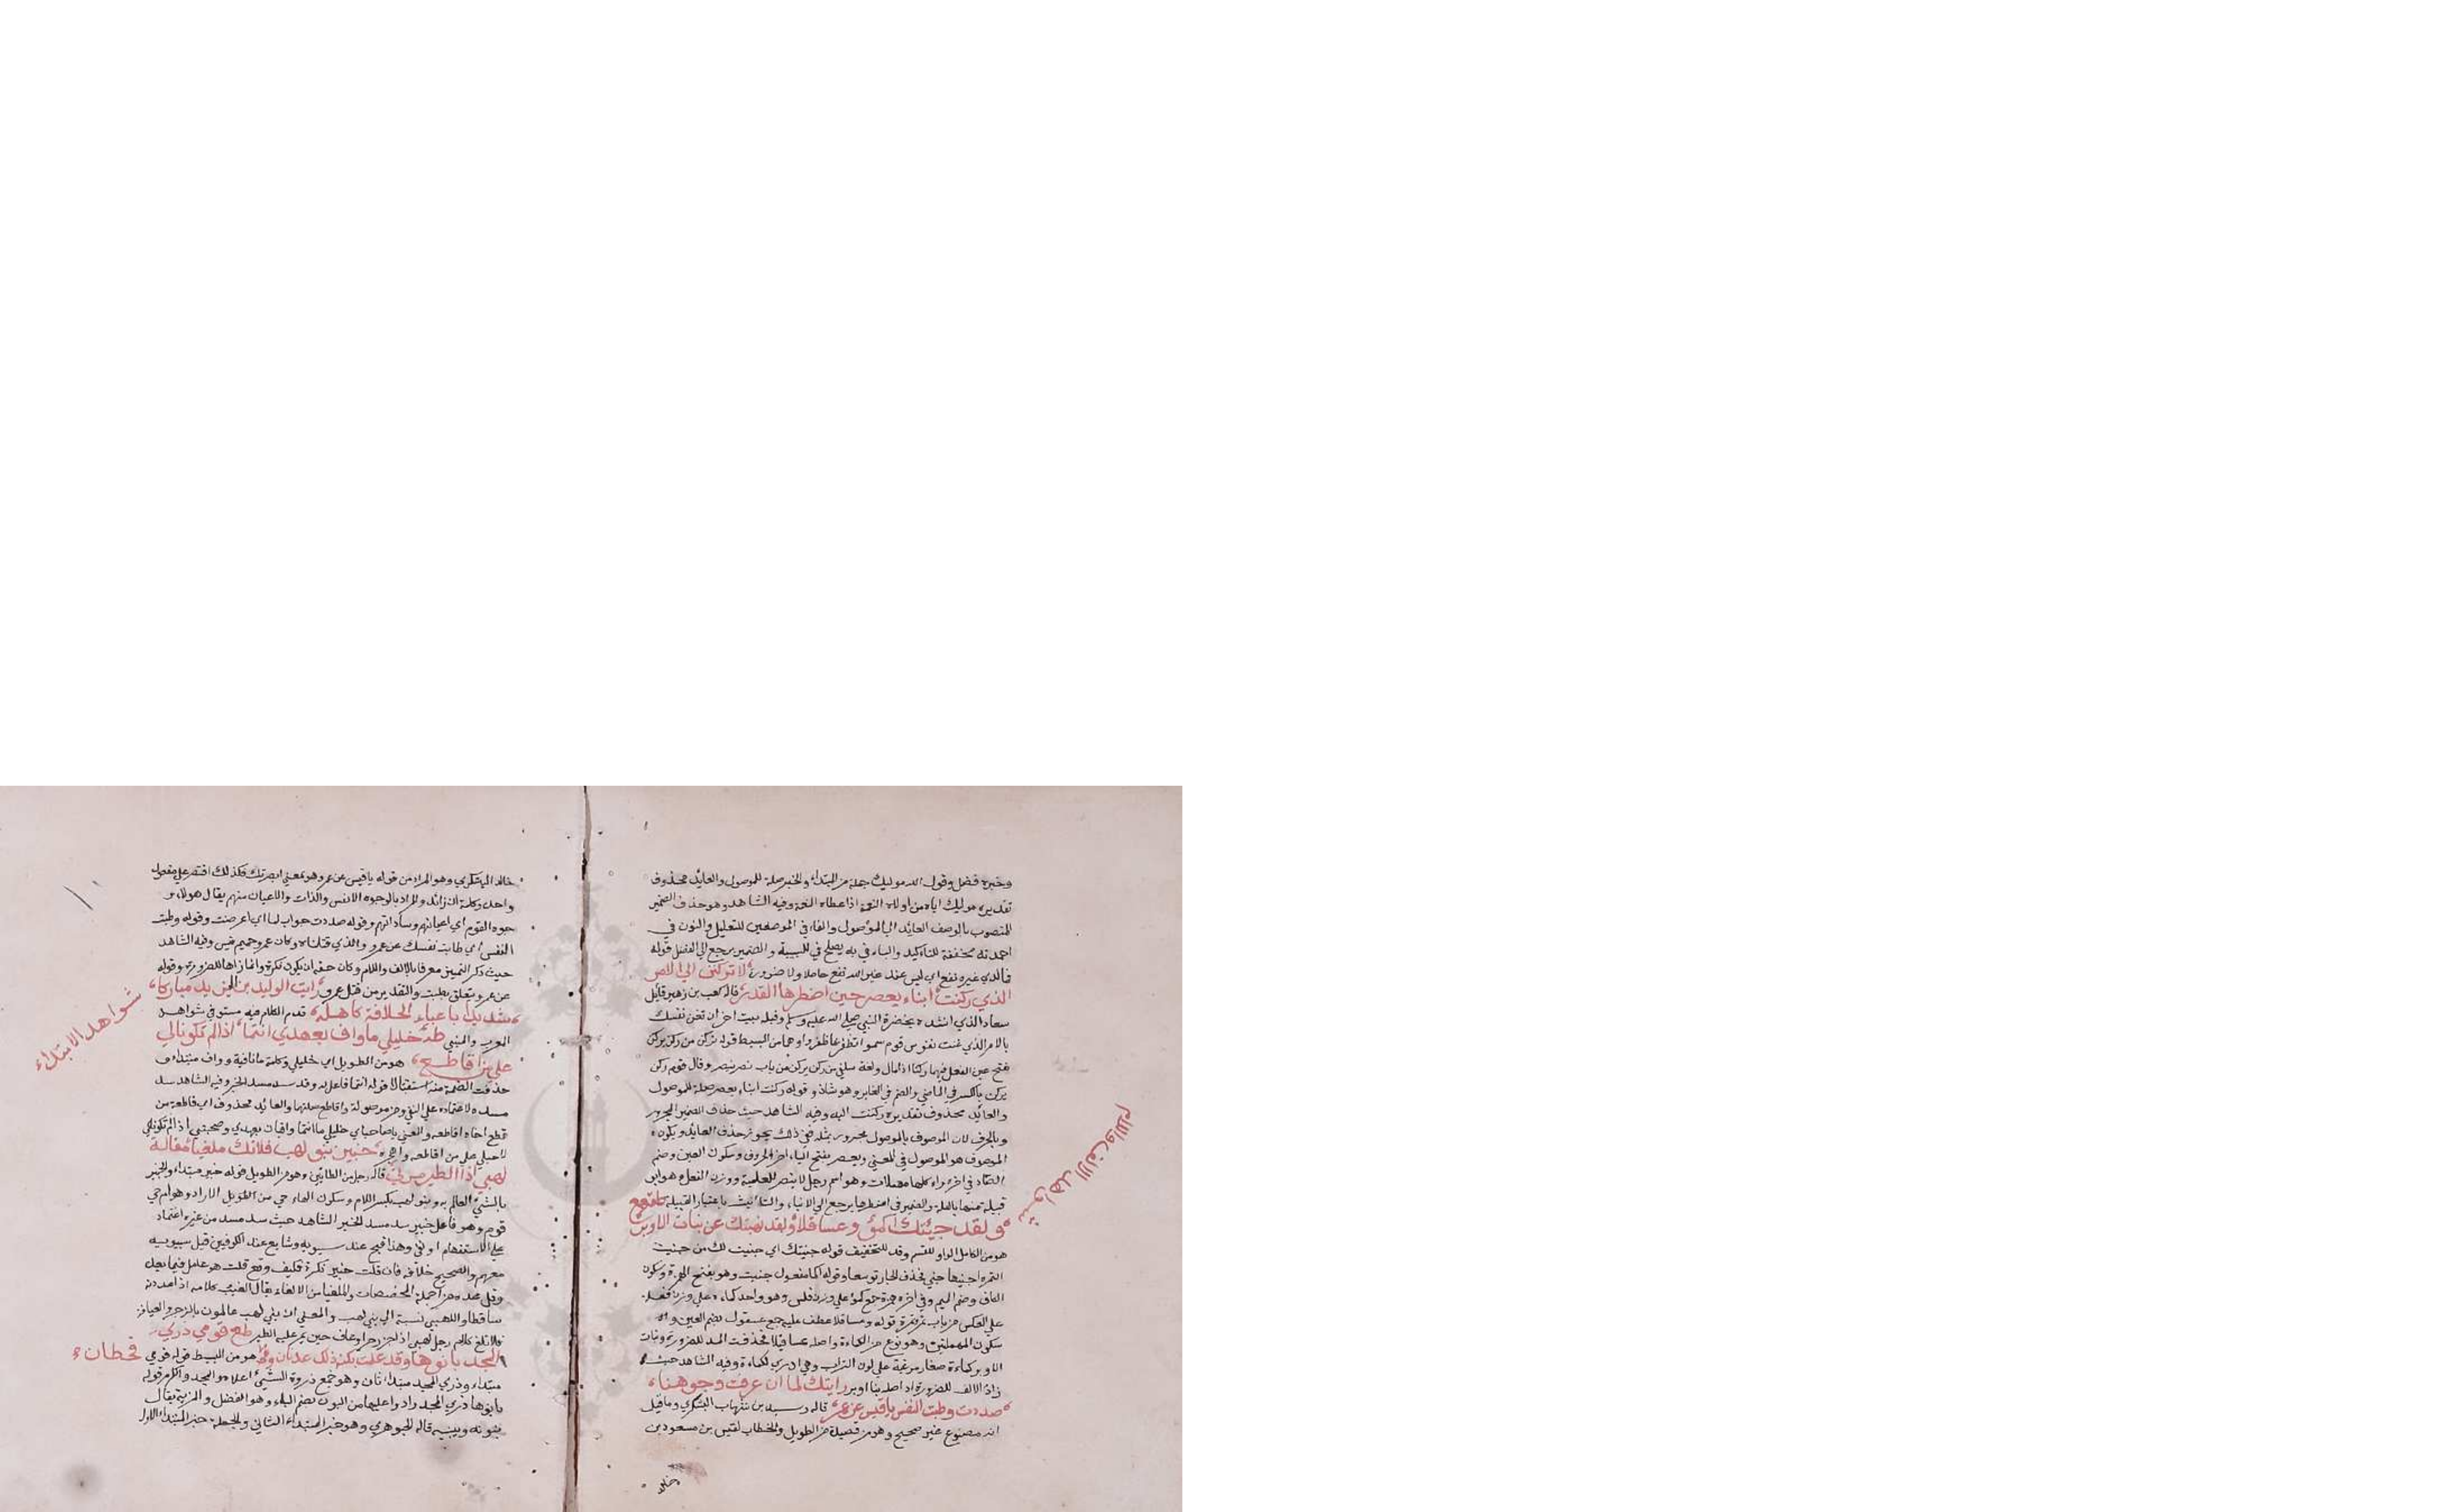 وخبره فضل وقوله الله موليك جملة من المبتداء والخبر صلة للموصول والعايد محذوف
تقديره موليك اياه من اولاه النعمة اذا اعطاه النعمة وفيه الشاهد وهو حذف الضمير
المنصوب بالوصف العايد الي الموصول والفاء في الموضعين للتعليل والنون في
احمدنه مخففة للتاكيد والباء في به يصلح في للسببية والضمير يرجع الي الفضل قوله
فالذي غيره نفع اي ليس عند غير الله نفع حاصلا ولا ضرورة لا تركنن الي الامر
الذي ركنت ابناء يعصر حين اضطرها القدر قاله كعب بن زهير قايل
سعاد الذي انشده بحضرة النبي صلي الله عليه وسلم وقبله بيت اخر ان تعن نفسك
بالامر الذي عنيت نفوس قوم سموا تظفر بما ظفروا وهما من البسيط قوله تركن من ركن يركن
بفتح عين الفعل فيهما ركنا اذا مال ولغة سفلي من ركن يركن من باب نصر ينصر وقال قوم ركن
يركن بالكسر في الماضي والضم في الغابر وهو شاذ وقوله ركنت ابناء يعصر صلة للموصول
والعائد محذوف تقديره ركنت اليه وفيه الشاهد حيث حذف الضمير المجرور
وبالحرف لان الموصوف بالموصول مجرور بمثله ففي ذلك يجوز حذف العايد ويكون
الموصوف هو الموصول في المعني ويعصر بفتح الياء اخر الحروف وسكون العين وضم
الصاد في اخره راء كلها مهملات وهو اسم رجل لا ينصرف للعلمية ووزن الفعل هو ابو
قبيلة منها باهلة والضمير في اضطرها يرجع الي الابناء والتانيث باعتبار القبيلة
ولقد جنيتك اكمؤ وعساقلا ولقد نهيتك عن بنات الاوبر
هو من الكامل الواو للقسم وقد للتحقيق قوله جنيتك اي جنيت لك من جنيت
الثمرة اجنيها جني فحذف الجار توسعا وقوله اكمأ مفعول جنيت وهو بفتح الهمزة وسكون
الكاف وضم الميم وفي اخره همزة جمع كموء علي وزن فلس وهو واحد كماءة علي وزن فعلة
علي العكس من باب تمر وتمرة قوله وعساقلا عطف عليه جمع عسقول بضم العين و
سكون المهملتين وهو نوع من الكماءة واصله عساقيلا فحذفت المد للضرورة وبنات
الاوبر كماءة صغار مزغبة علي لون التراب وهي اردي الكماءة وفيه الشاهد حيث
زاد الالف للضرورة اذ اصله بنات اوبر رايتك لما ان عرفت وجوهنا
صددت وطبت النفس يا قيس عن عمرو قاله رشيد بن شهاب اليشكري وما قيل
انه مصنوع غير صحيح وهو من قصيدة من الطويل والخطاب لقيس بن مسعود بن
خالد
شواهد الالف واللام
خالد اليشكري وهو المراد من قوله يا قيس عن عمرو وهو بمعني ابصرتك فلذلك اقتصر علي مفعول
واحد وكلمة ان زائد والمراد بالوجوه الانفس والذات والاعيان منهم يقال هولاء و
جوه القوم اي اعيانهم وساداتهم وقوله صددت جواب لما اي اعرضت وقوله وطبت
النفس اي طابت نفسك عن عمرو والذي قتلناه وكان عمرو حميم قيس وفيه الشاهد
حيث ذكر التمييز معرفا بالالف واللام وكان حقه ان يكون نكرة وانما زادها للضرورة وقوله
عن عمرو يتعلق بطبت والتقدير من قتل عمرو رايت الوليد بن اليزيد مباركا
شديدا باعباء الخلافة كاهله تقدم الكلام فيه مستوفي شواهد
المعرب والمبني خليلي ما واف بعهدي انتما اذا لم تكونا لي
علي من اقاطع هو من الطويل اي خليلي وكلمة ما نافية وواف مبتداء
حذفت الضمة منه استثقالا قوله انتما فاعل به وقد سد مسد الخبر وفيه الشاهد سد
مسده لاعتماده علي النفي ومن موصولة واقاطع صلتها والعايد محذوف اي اقاطعه من
قطع اخاه اقاطعه والمعني يا صاحباي خليلي ما انتما وافيان بعهدي وصحبتي اذا لم تكونا لي
لاجلي علي من اقاطعه واهجره خبير بنو لهب فلا تك ملغيا مقالة
لهبي اذا الطير مرت قاله رجل من الطائيين وهو من الطويل قوله خبير مبتداء والخبير
بالشئ العالم به وبنو لهب بكسر اللام وسكون الهاء حي من
قوم وهو فاعل خبير سد مسد الخبر الشاهد حيث سد مسد من غير اعتماد
علي الاستفهام او نفي وهذا قبيح عند سيبويه وشايع عند الكوفيين قيل سيبويه
معهم والصحيح خلافه فان قلت خبير نكرة فكيف وقع قلت هو عامل فيما بعده
ساقطا واللهبي نسبة الي بني لهب والمعني ان بني لهب عالمون بالزجر والعيافة
فلا تلغ كلام رجل لهبي اذا زجر وعاف حين يمر عليه الطير قومي ذري
المجد بانوها وقد علمت بكنه ذلك عدنان وقحطان هو من البسيط قوله قومي
مبتداء وذري المجد مبتداء ثان وهو جمع ذروة الشئ اعلاه والمجد والكرم قوله
بانوها ذري المجد زادوا عليها من البون بضم الباء وهو الفضل والمزية يقال
بنونه ويبينه قاله الجوهري وهو خبر المبتداء الثاني والجملة خبر المبتداء الاول
شواهد الابتداء